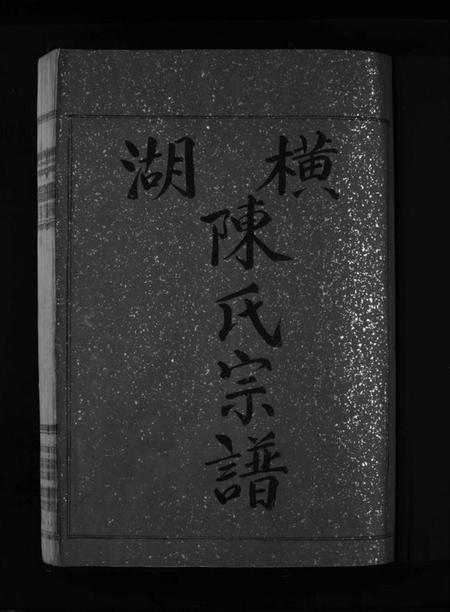 橫湖
陳氏宗譜